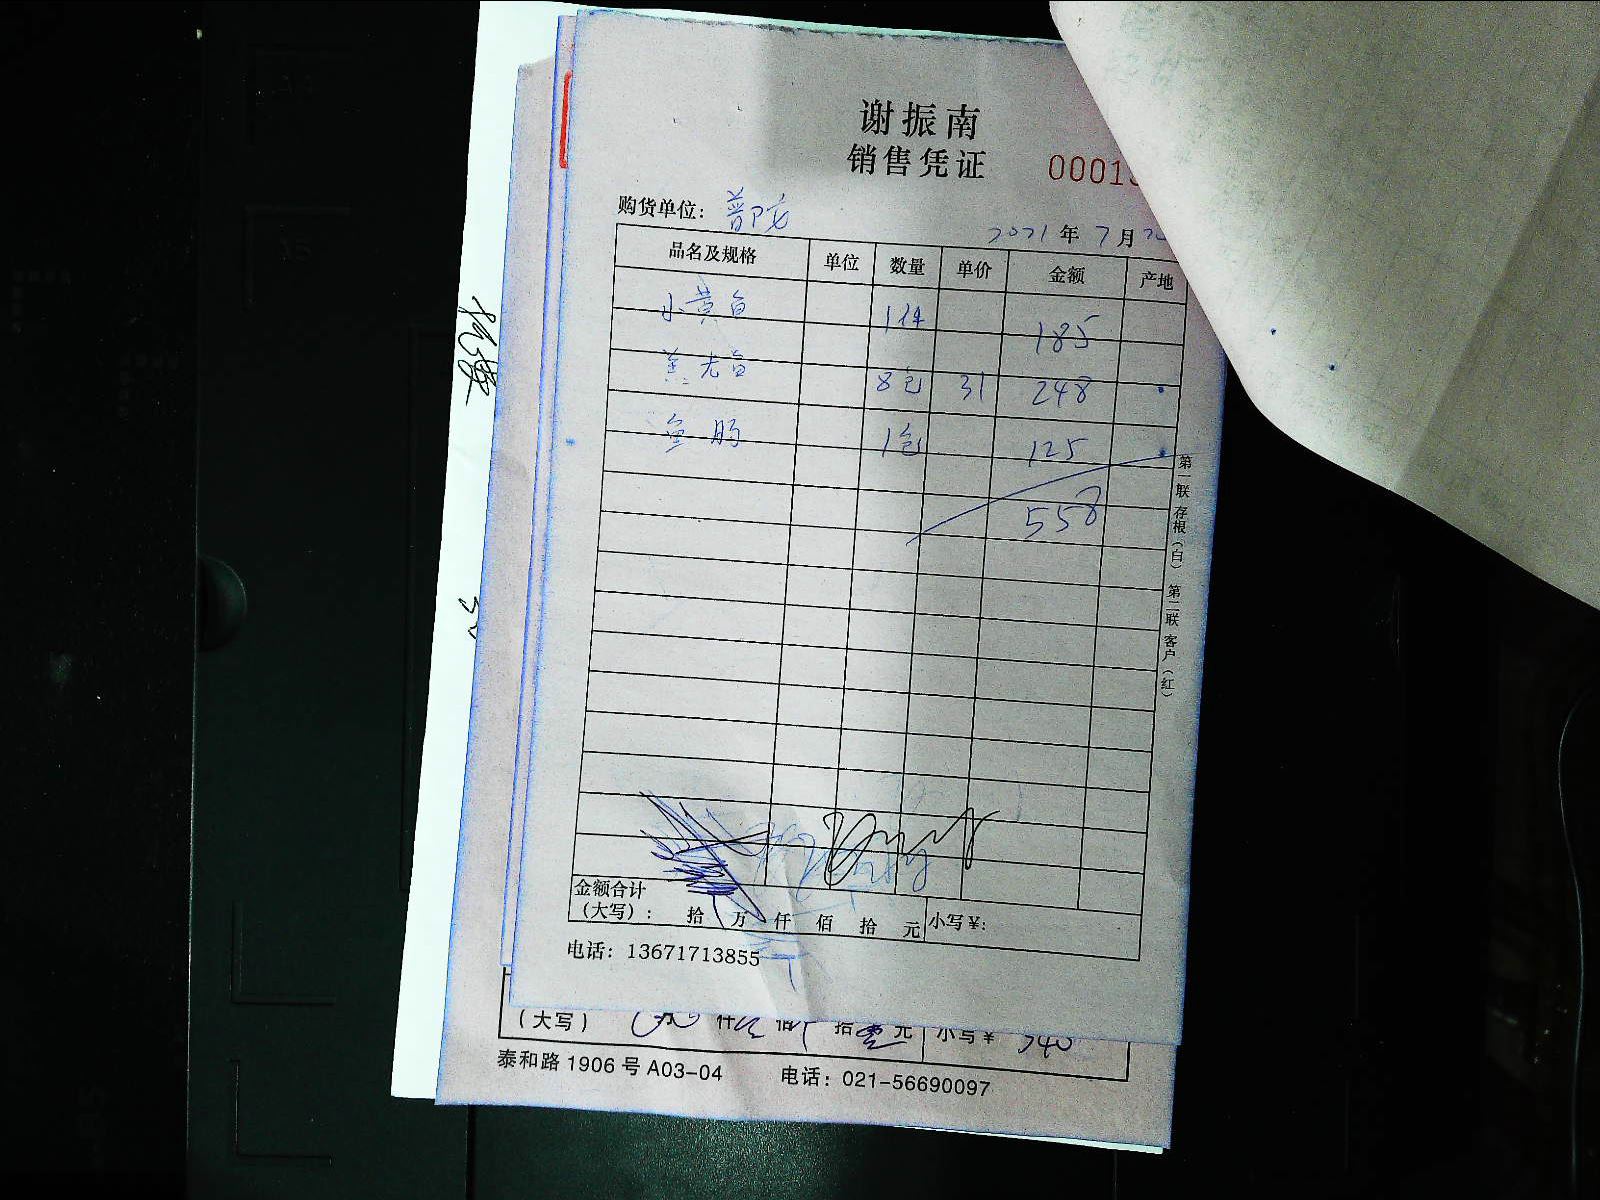 谢振南
销售凭证
0001
购货单位：普陀
2021年7月20
品名及规格 单位 数量 单价 金额 产地
小黄鱼 1件 185
黄老鱼 8包 31 248
鱼肠 1包 125
558
第一联 存根（白） 第二联 客户（红）
金额合计
（大写）： 拾 万 仟 佰 拾 元 小写￥：
电话：13671713855
（大写） 万 仟 佰 拾 元 小写￥ 540
泰和路1906号A03-04 电话：021-56690097